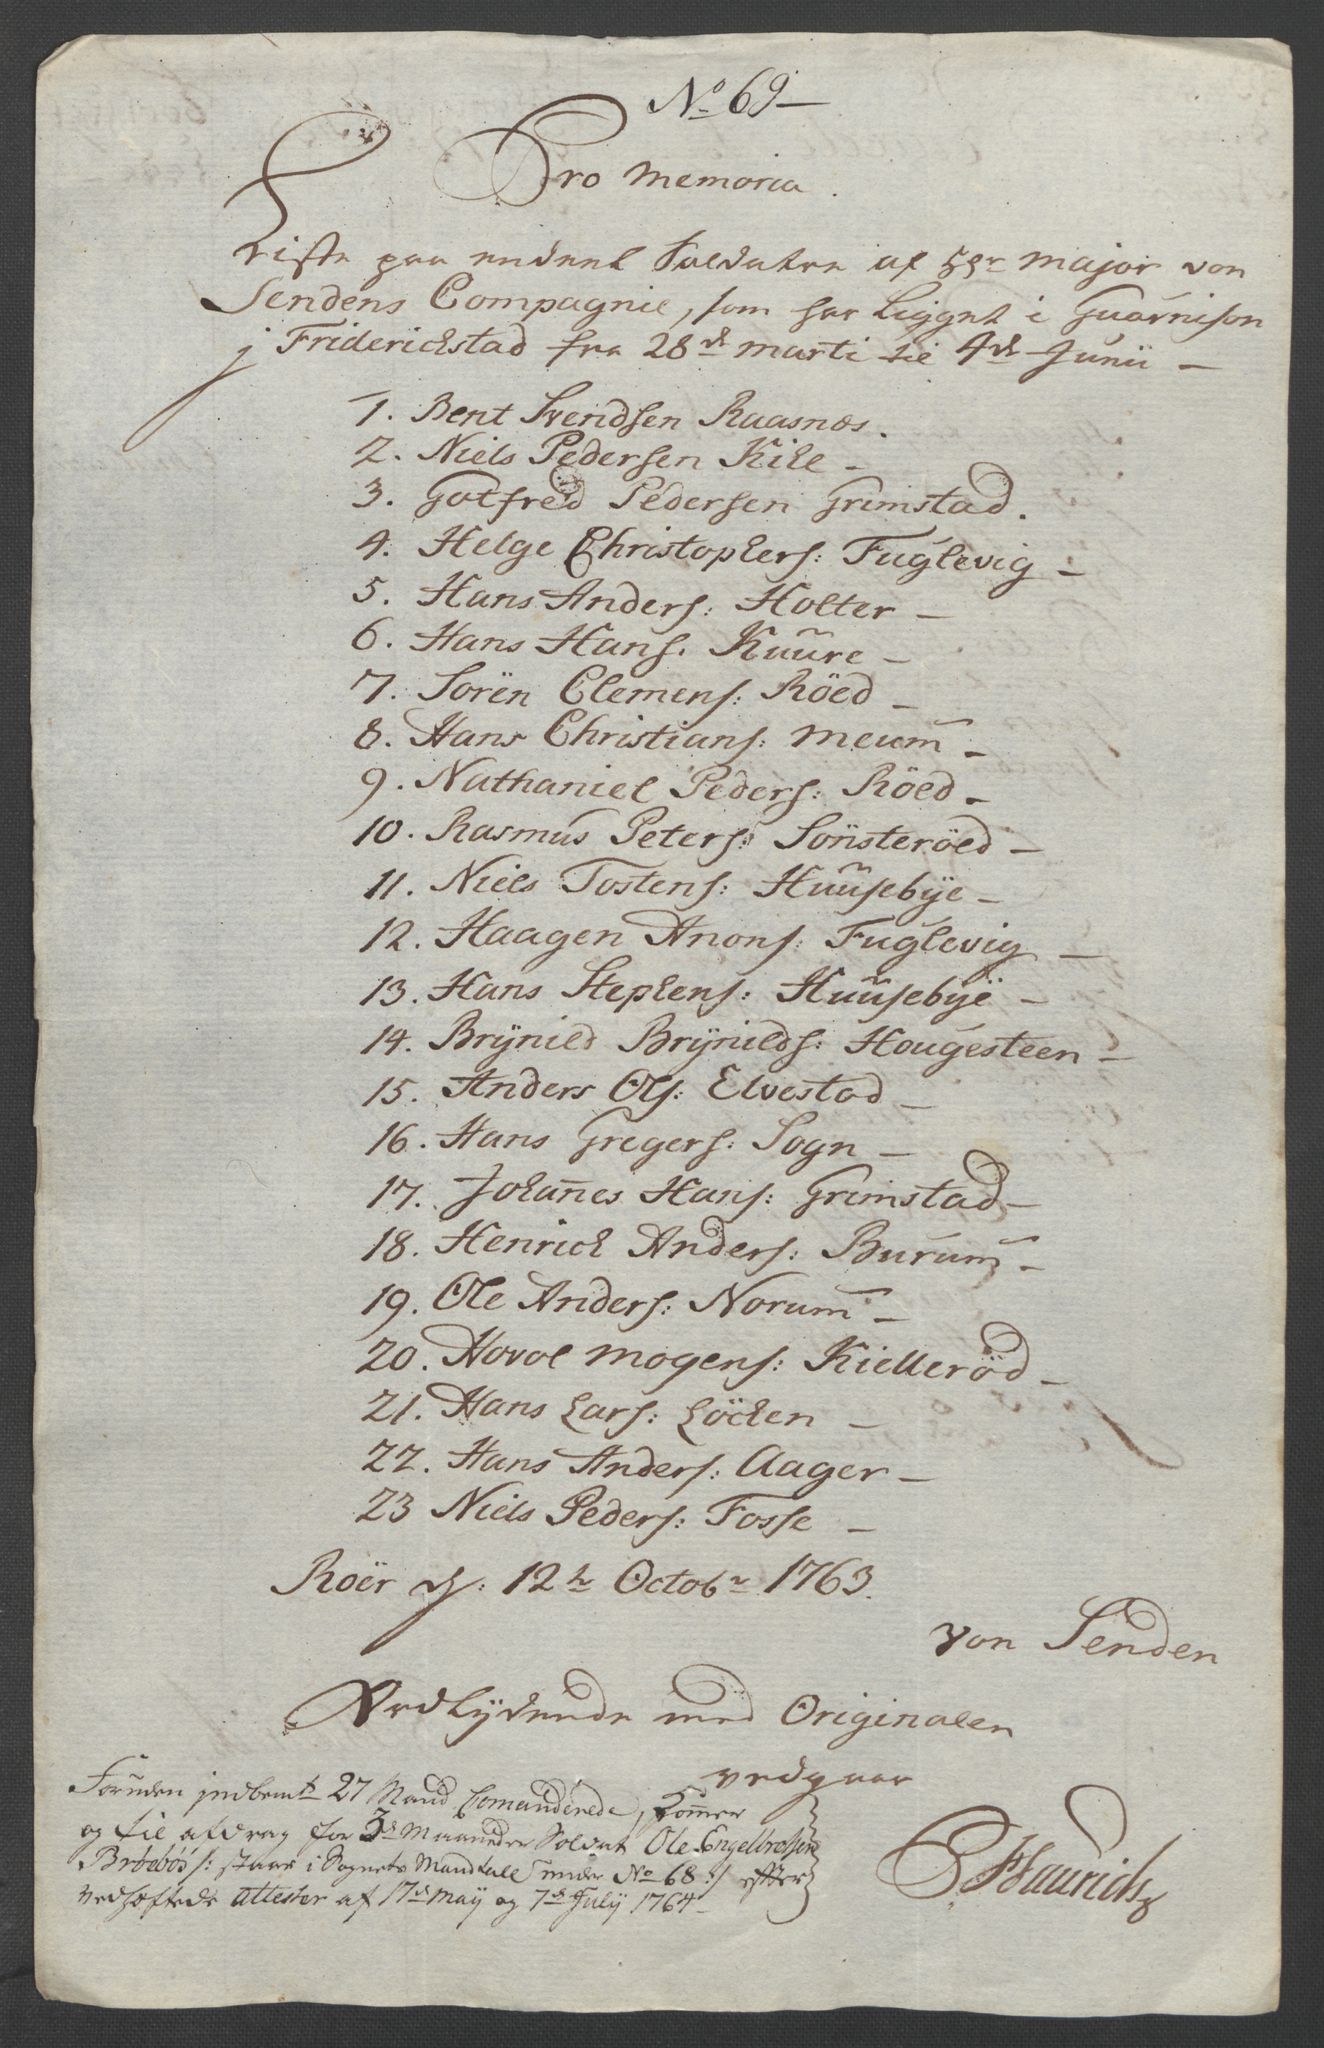 No 69 —
Pro Memoria.
Liste paa endeel Soldater af Hr Major von
Sendens Compagnie, som har Ligget i Guarnison
i Friderichstad fra 28de Marti til 4de Junii —
1. Bent Svendsen Raasnæs.
2. Niels Pedersen Kihl —
3. Gotfred Pedersen Grimstad.
4. Helge Christophers: Fuglevig —
5. Hans Anders: Holter —
6. Hans Hans. Kuure —
7. Sören Clemens: Röed —
8. Hans Christians: Meum —
9. Nathaniel Peders: Röed —
10. Rasmus Peters: Sönsteröed —
11. Niels Tostens: Huusebÿe —
12. Haagen Anons: Fuglevig —
13. Hans Stephens: Huusebÿe —
14. Brÿnild Brÿnilds: Hougesteen —
15. Anders Ols: Elvestad —
16. Hans Gregers: Sogn —
17. Johañes Hans: Grimstad —
18. Henrich Anders: Burum —
19. Ole Anders: Norum —
20. Hovol Mogens: Kiellerød —
21. Hans Lars: Löcken —
22. Hans Anders: Aager —
23 Niels Peders: Fosse —
Roër d: 12te Octobr 1763.
von Senden
Ligelydende med Originalen
vedgaar
Foruden indbemte 27 Mand Comanderede, kom̃er
og til afdrag for 3de Maaneder Soldat Ole Engelbretsen
Bröebös /: staar i Sognets Mandtall under No 68 :/ efter
vedhæftede attester af 17de Maÿ og 7de Julÿ 1764 —
Haurich